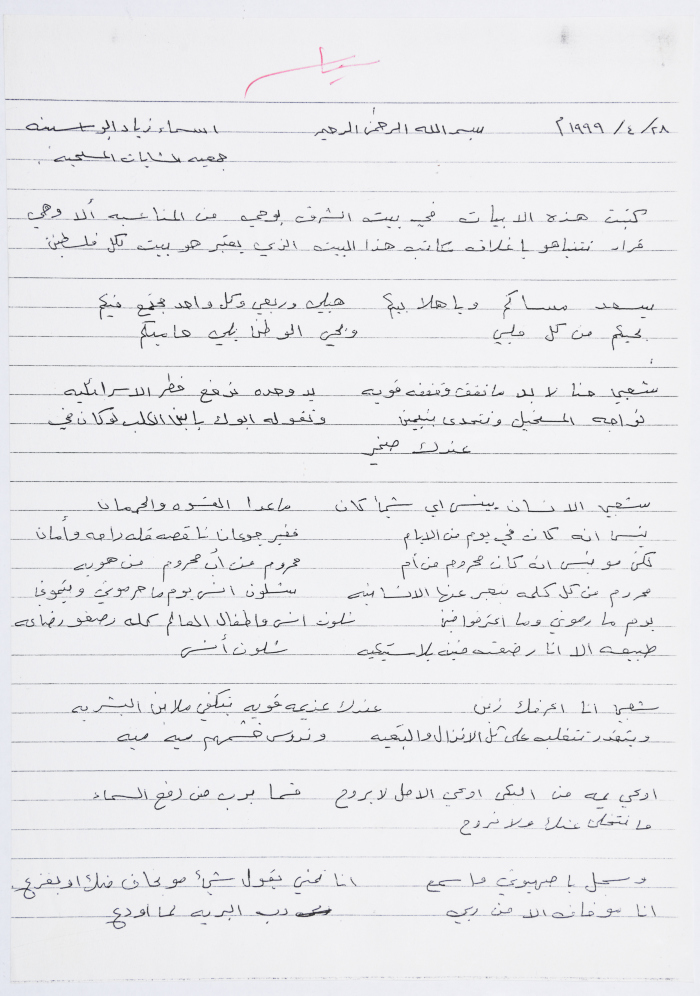 ٢٨/ ٤ / ١٩٩٩م بسم الله الرحمن الرحيم اسماء زياد
جمعيه الشابات المسيحية
كتبت هذه الابيات في بيت الشرق بوحي من المناسبه ألا وهي
قرار نتنياهو بإغلاق مكاتب هذا البيت الذي يعتبر هو بيت لكل فلسطين
يسعد مساكم ويا هلا بيكم هيلي وربعي وكل واحد مجتمع فيكم
بحيكم من كل قلبي وبحي الوطن يلي حاميكم
شعبي حنا لا بد ما نقف وقفه قويه يد وحده توقع خطر الاسرائيليه
نواجه المستحيل ونتحدى بيبيين وتقوله ابوك يا ابن الكلب لو كان في
عندك ضمير
شعبي الانسان بينسى اي شيء كان ماعدا القسوه والحرمان
ينسى انه كان في يوم من الايام فقير جوعان ناقصه قله راحه وأمان
لكن مو بنسى انه كان محروم من أم محروم من أب محروم من هويه
محروم من كل كلمه بتعبر عنها الانسانيه شلون انسى يوم ما حرموني
يوم ما رموني وما اعترفوا فيي شلون انسى واطفال العالم كله رضعو رضاعه
طبيعيه الا انا رضعته قنينه بلاستيكيه شلون أنسى
شعبي انا اعرفك زين عندك عزيمه قويه بتكفي ملاين البشريه
وبتقدر تتغلب على كل الانذال والبقيه وندوس خشمهم ميه ميه
اوعى يمه من البكى اوعى الامل لا يروح قسما برب من رفع السماء
ما نتخلى عنك ولا نروح
وسجل يا صهيوني واسمع انا يمني بقول شيء مو بخاف منك او بفزع
انا مو خايف الا من ربي رب البريه لما اودع